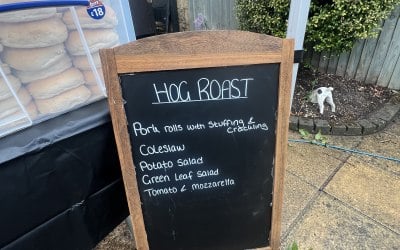 £18
HOG ROAST
Pork rolls with Stuffing &
Crackling
Coleslaw
Potato salad
Green Leaf salad
Tomato & mozzarella